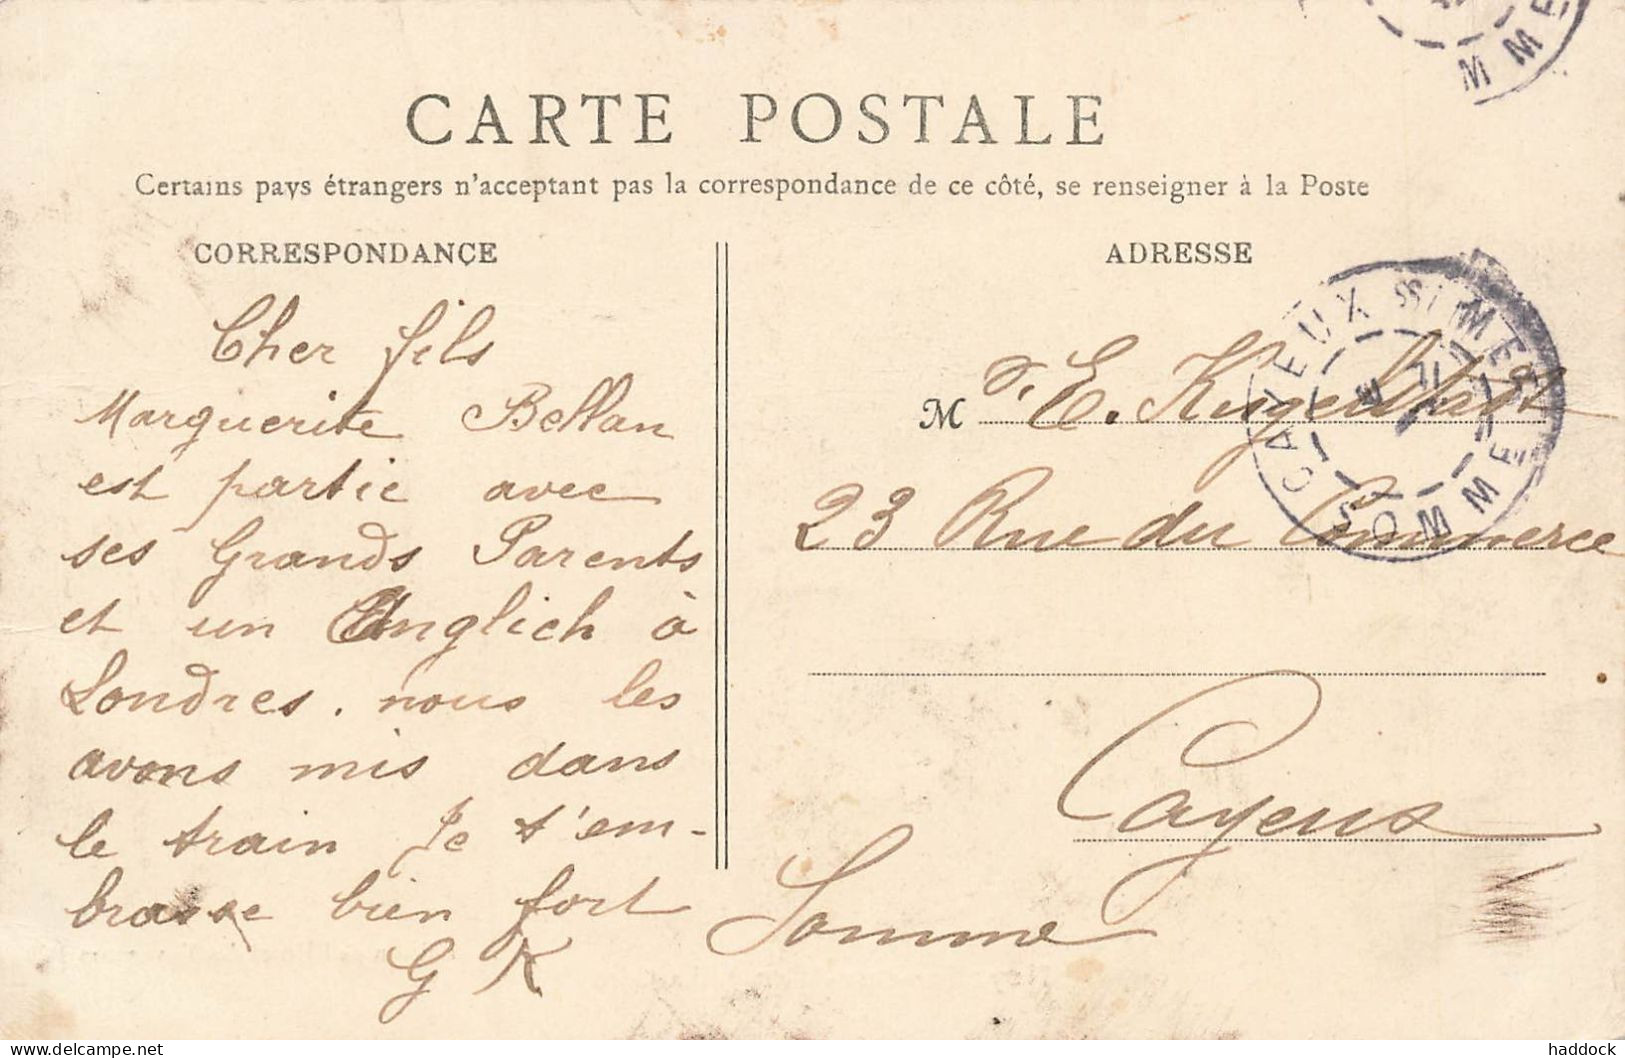 CARTE POSTALE
Certains pays étrangers n'acceptent pas la correspondance de ce côté, se renseigner à la Poste
CORRESPONDANCE
Cher fils
Marguerite Bellan
est partie avec
ses Grands Parents
et un Anglich à
Londres. nous les
avons mis dans
le train Je t'em-
brasse bien fort
G K
ADRESSE
M r. E.
23 Rue du Commerce
Cayeux
Somme
CAYEUX S/ MER
SOMME
MME
delcampe.net
haddock